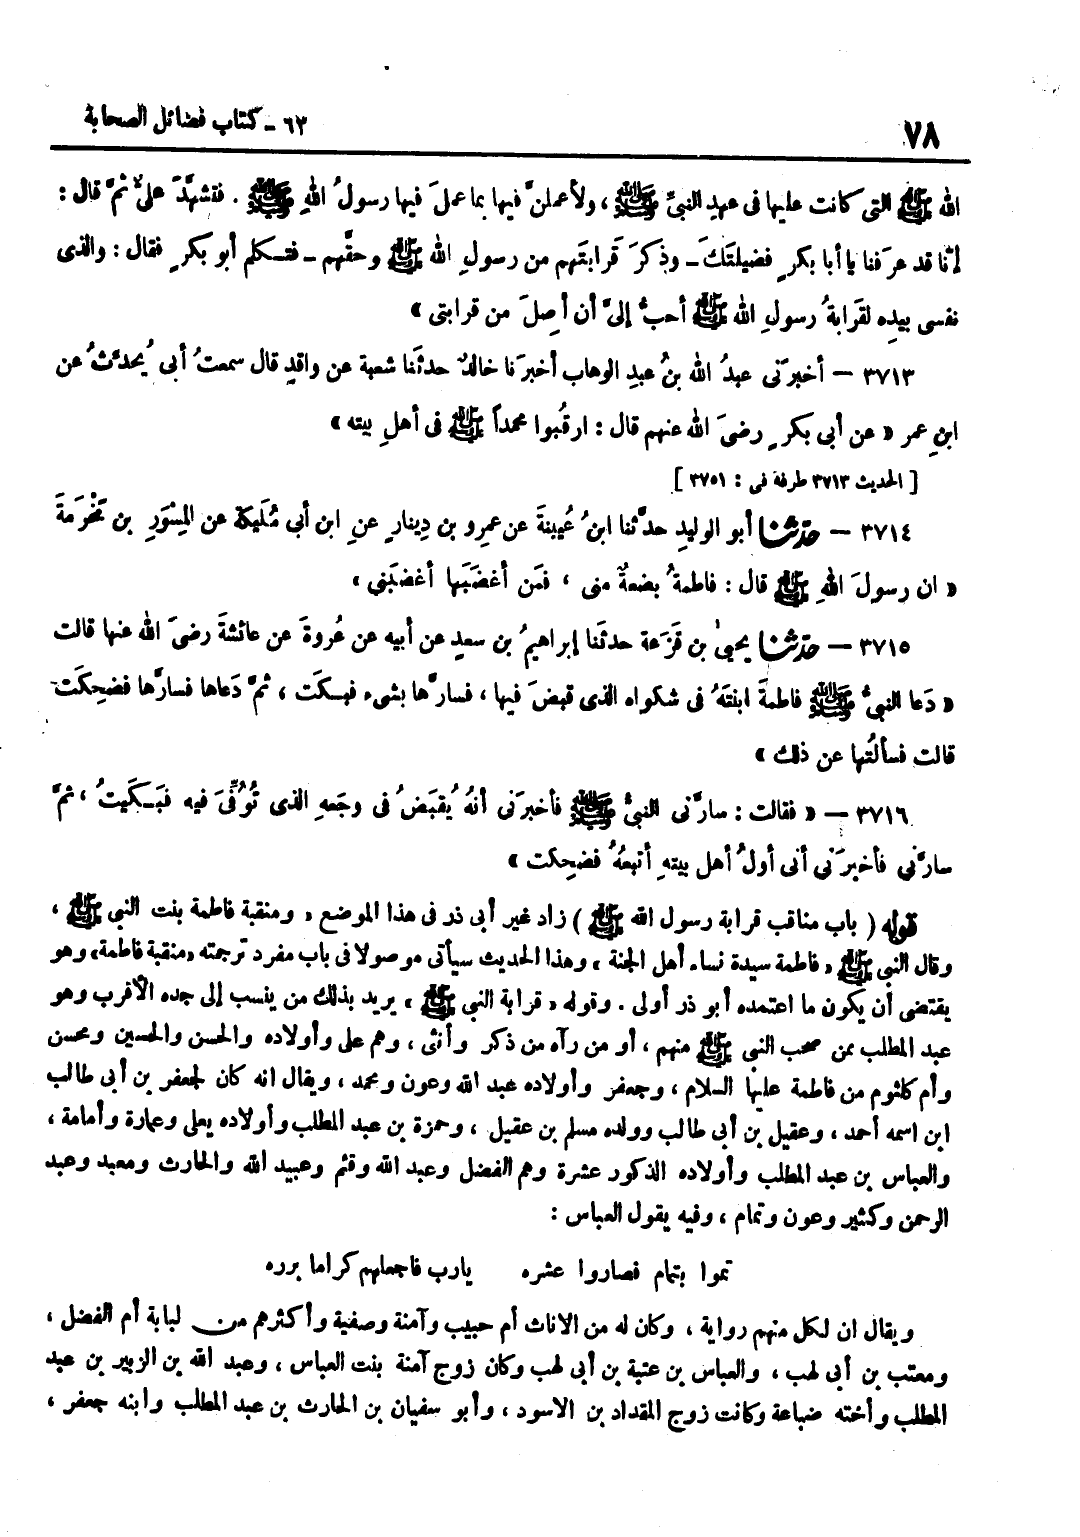 ٧٨
٦٢ - كتاب فضائل الصحابة
الله ﷺ التى كانت عليها فى عهدِ النبىِّ ﷺ ، ولأعملنَّ فيها بما عملَ فيها رسولُ اللهِ ﷺ . فتشهَّدَ علىٌّ ثمَّ قال :
إنّا قد عرَفنا يا أبا بكرٍ فضيلتَك – وذكرَ قَرابتَهم من رسولِ اللهِ ﷺ وحقَّهم – فتكلم أبو بكرٍ فقال : والذى
نفسى بيدِه لقَرابةُ رسولِ الله ﷺ أحبُّ إلىَّ أن أصِلَ من قرابتى »
٣٧١٣ – أخبرَنى عبدُ الله بنُ عبدِ الوهاب أخبرَنا خالدٌ حدثَنا شعبة عن واقدٍ قال سمعتُ أبى يُحدِّثُ عن
ابنِ عمر « عن أبى بكرٍ رضىَ الله عنهم قال : ارقُبوا محمداً ﷺ فى أهلِ بيته »
[ الحديث ٣٧١٣ طرفه فى : ٣٧٥١ ]
٣٧١٤ – حدّثنا أبو الوليدِ حدَّثنا ابنُ عُيينةَ عن عمرِو بن دِينارٍ عنِ ابن أبى مُلَيكةَ عن المِسْوَرِ بن مَخْرَمةَ
« ان رسولَ اللهِ ﷺ قال : فاطمةُ بضعةٌ منى ، فمَن أغضَبَها أغضَبنى »
٣٧١٥ – حدّثنا يحيىٰ بن قَزَعة حدثَنا إبراهيمُ بن سعدٍ عن أبيه عن عُروةَ عن عائشةَ رضىَ الله عنها قالت
« دَعا النبىُّ ﷺ فاطمةَ ابنتَهُ فى شكواه الذى قبضَ فيها ، فسارَّها بشىء فبكَت ، ثمَّ دَعاها فسارَّها فضحِكَت
قالت فسألتُها عن ذلك »
٣٧١٦ – « فقالت : سارَّنى النبىُّ ﷺ فأخبرَنى أنهُ يُقبَضُ فى وجَعِهِ الذى تُوُفِّىَ فيه فبَكَيتُ ، ثمَّ
سارَّنى فأخبرَنى أنى أولُ أهل بيتهِ أتبعُهُ فضحِكت »
قوله ( باب مناقب قرابة رسول الله ﷺ ) زاد غير أبى ذر فى هذا الموضع « ومنقبة فاطمة بنت النبى ﷺ ،
وقال النبى ﷺ « فاطمة سيدة نساء أهل الجنة ، وهذا الحديث سيأتى موصولا فى باب مفرد ترجمته «منقبة فاطمة» وهو
يقتضى أن يكون ما اعتمده أبو ذر أولى . وقوله « قرابة النبى ﷺ ، يريد بذلك من ينسب إلى جده الأقرب وهو
عبد المطلب ممن صحب النبى ﷺ منهم ، أو من رآه من ذكر وأنثى ، وهم على وأولاده والحسن والحسين ومحسن
وأم كلثوم من فاطمة عليها السلام ، وجعفر وأولاده عبد الله وعون ومحمد ، ويقال انه كان لجعفر بن أبى طالب
ابن اسمه أحمد ، وعقيل بن أبى طالب وولده مسلم بن عقيل ، وحمزة بن عبد المطلب وأولاده يعلى وعمارة وأمامة ،
والعباس بن عبد المطلب وأولاده الذكور عشرة وهم الفضل وعبد الله وقثم وعبيد الله والحارث ومعبد وعبد
الرحمن وكثير وعون وتمام ، وفيه يقول العباس :
تموا بتمام فصاروا عشره يارب فاجعلهم كراما برره
ويقال ان لكل منهم رواية ، وكان له من الاناث أم حبيب وآمنة وصفية وأكثرهم من لبابة أم الفضل ،
ومعتب بن أبى لهب ، والعباس بن عتبة بن أبى لهب وكان زوج آمنة بنت العباس ، وعبد الله بن الزبير بن عبد
المطلب وأخته ضباعة وكانت زوج المقداد بن الاسود ، وأبو سفيان بن الحارث بن عبد المطلب وابنه جعفر ،